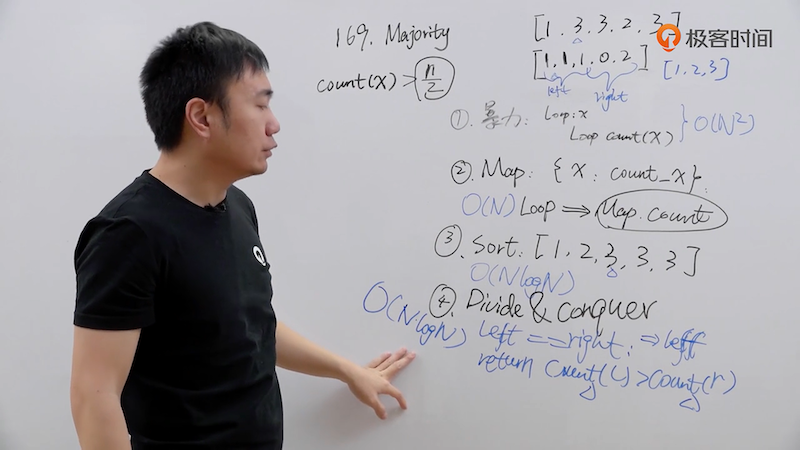 169. Majority
count(x) > n/2
[1, 3, 3, 2, 3]
极客时间
[1, 1, 1, 0, 2]
[1, 2, 3]
left
right
①. 暴力: Loop: x
Loop count(x)
} O(N²)
②. Map: {x: count_x}.
O(N) Loop ⇒ Map.count
③. Sort: [1, 2, 3, 3, 3]
O(NlogN)
④. Divide & Conquer
O(NlogN)
left == right: ⇒ left
return count(l) > count(r)